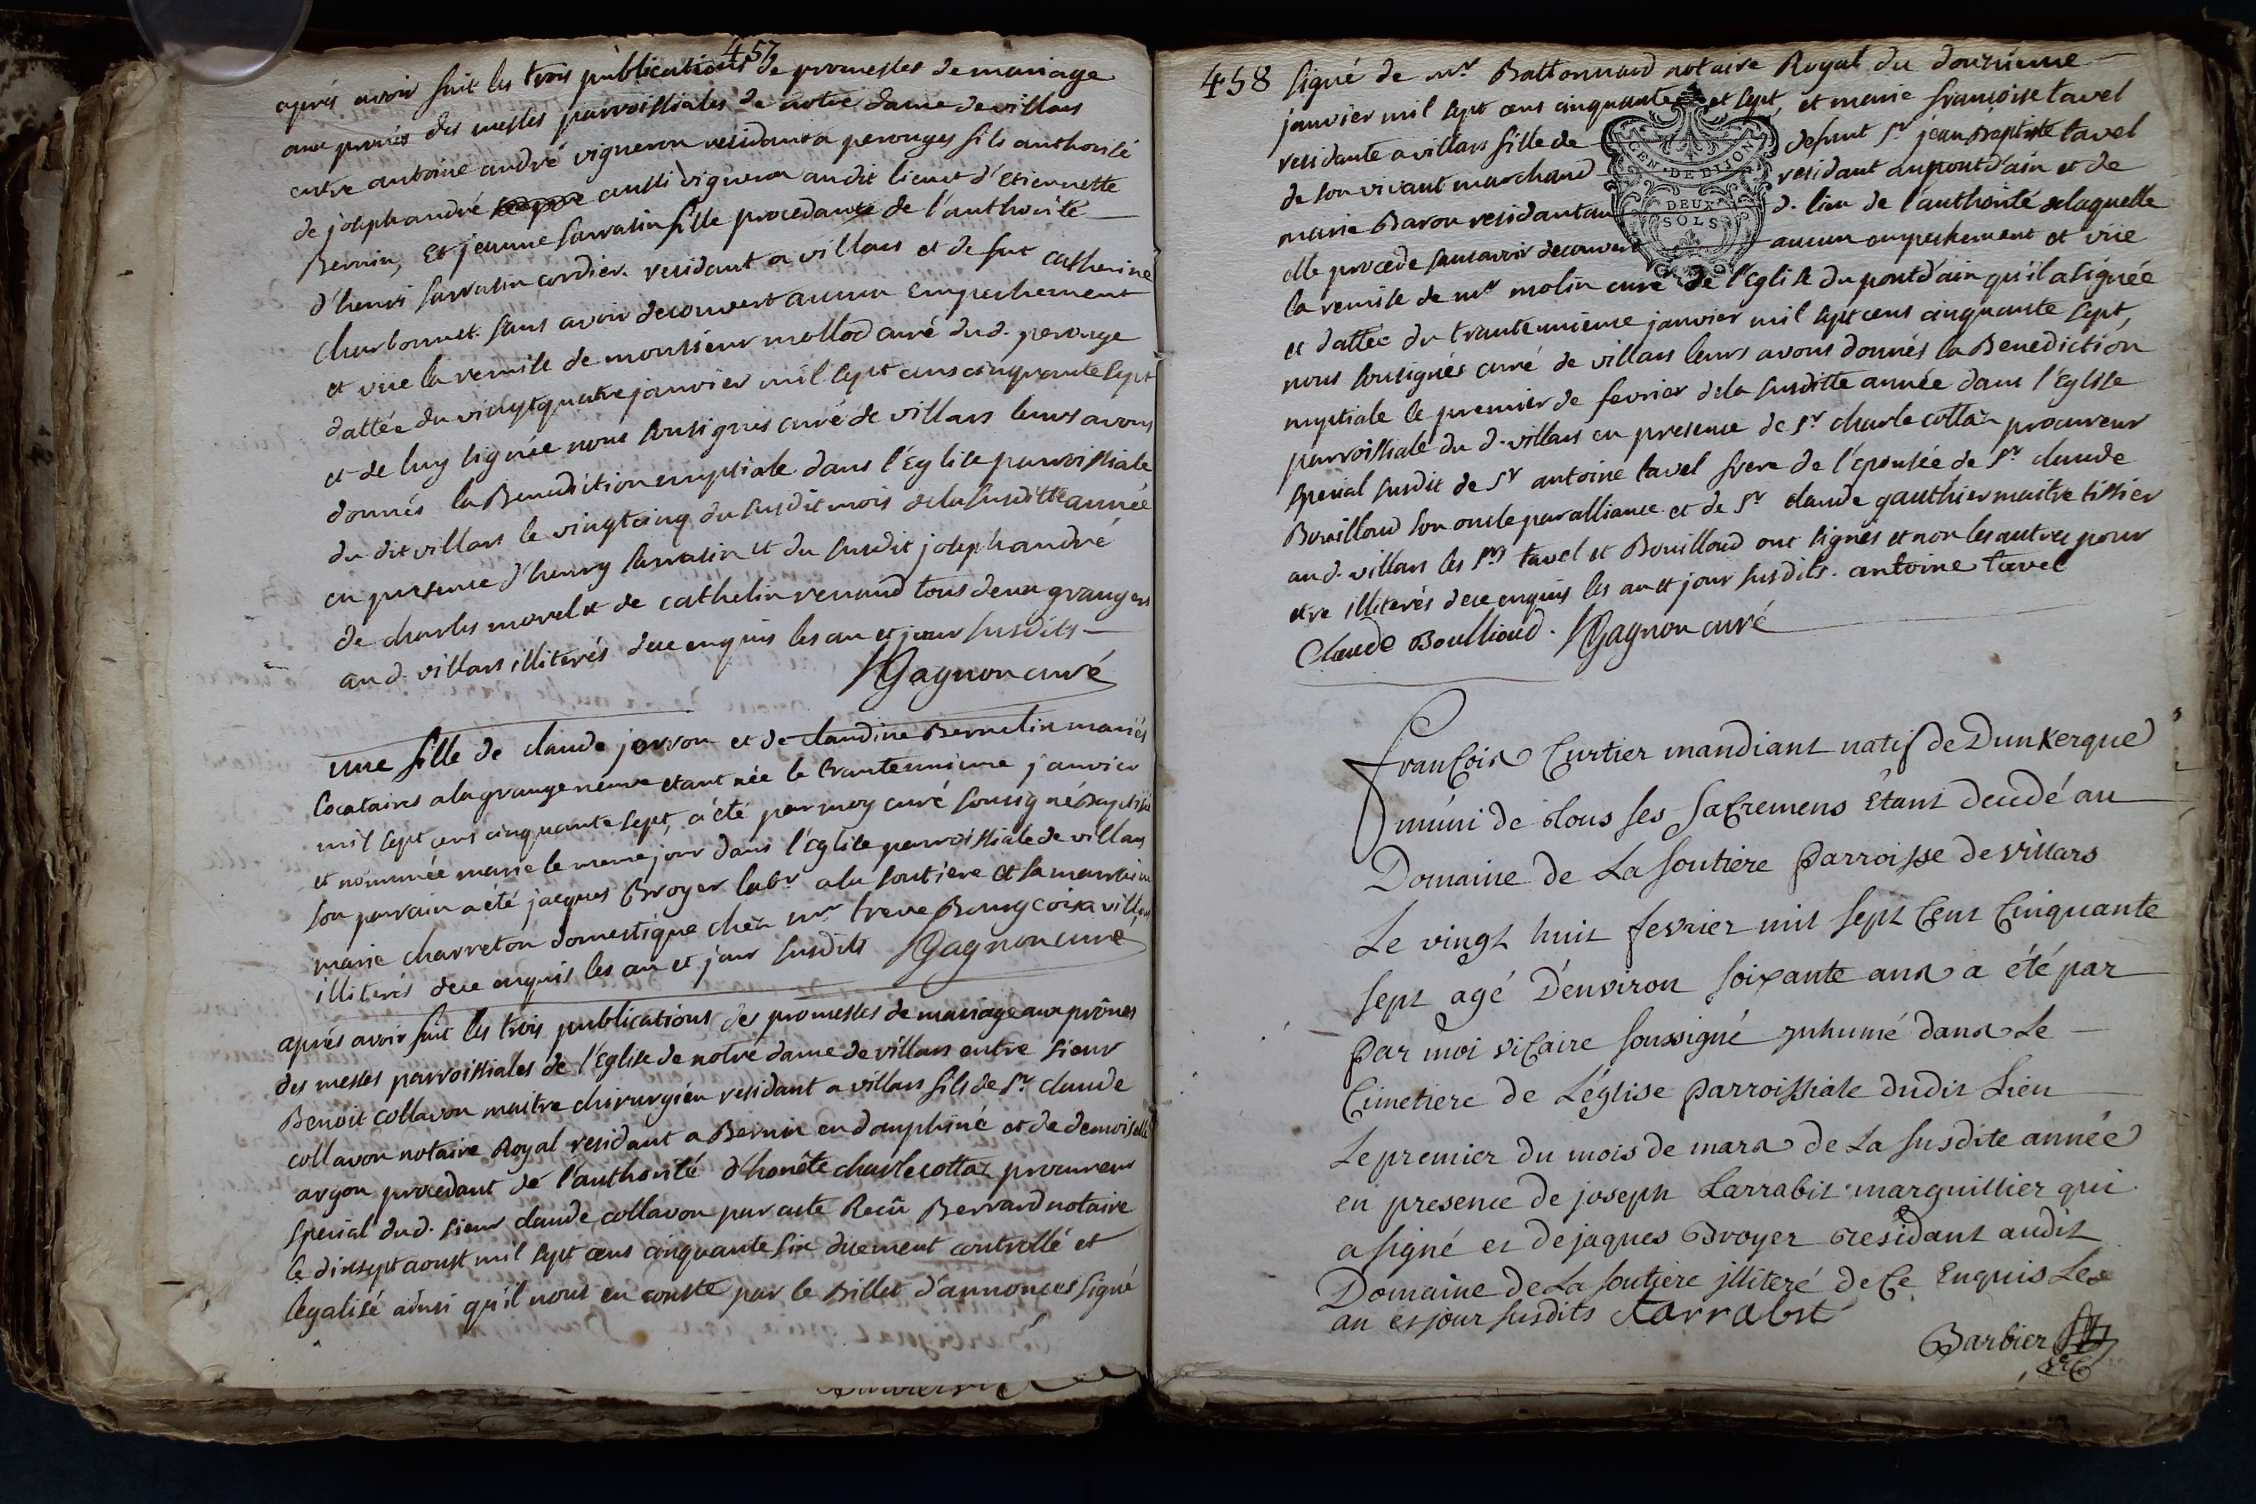 457
après avoir fait les trois publications de promesses de mariage
aux prônes des messes parroissiales de notre dame de villars
entre antoine andré vigneron residant a perouges fils authorisé
de joseph andré aussi vigneron audit lieu et d'etiennette
Bernin, Et jeanne sarrasin fille procedante de l'authorité
d'henri sarrasin cordier residant a villars et de fut catherine
charbonnet. sans avoir decouvert aucun empechement
et vüe la remise de monsieur mollod curé dud. perouge
dattée du vingt quatre janvier mil sept cens cinquante sept
et de luy signée nous sousignés curé de villars leurs avons
donnés la Benediction nuptiale dans l'Eglise parroissiale
du dit villars le vingt cinq du susdit mois de la susditte année
en presence d'henry sarrasin et du susdit joseph andré
de charles morel et de cathelin renaud tous deux grangers
aud. villars illiterés de ce enquis les an et jour susdits
Gagnon curé
une fille de claude jorron et de claudine Bernelin mariés
locataires a la grange neuve etant née le tranteunieme janvier
mil sept cens cinquante sept, a été par moy curé sousigné Baptisée
et nommée marie le meme jour dans l'Eglise parroissiale de villars
son parrain a été jacques Broyer labr a la soutiere et sa marraine
marie charreton domestique chèz mr treve Bourgeois a villars
illiterés de ce enquis les an et jour susdits Gagnon curé
après avoir fait les trois publications des promesses de mariage aux prônes
des messes parroissiales de l'Eglise de notre dame de villars entre sieur
Benoit collavon maitre chirurgién residant a villars fils de sr. claude
collavon notaire Royal residant a Bernin en dauphiné et de demoiselle
argou procedant de l'authorité d'honête charle cottaz procureur
special dud. sieur claude collavon par acte Recû Berrard notaire
le dixsept aoust mil sept cens cinquante six duement controllé et
legalisé ainsi qu'il nous en conste par le Billet d'annonces signé
458
signé de mr Battonnard notaire Royal du douzieme
janvier mil sept cens cinquante et sept, et marie françoise tavel
residante a villars fille de defunt sr jean Baptiste tavel
de son vivant marchand residant au pont d'ain et de
marie Baron residant au d. lieu de l'authorité de laquelle
elle procede sans avoir decouvert aucun empechement et vüe
la remise de mr molin curé de l'Eglise du pont d'ain qu'il a signée
et dattée du trantunieme janvier mil sept cens cinquante sept,
nous sousignés curé de villars leurs avons donnés la Benediction
nuptiale le premier de fevrier de la susditte année dans l'Eglise
parroissiale du d. villars en presence de sr charle cottaz procureur
special susdit de sr antoine tavel frere de l'epousée de sr claude
Bouilloud son oncle par alliance et de sr claude gauthier maitre tissier
au d. villars les srs tavel et Bouilloud ont signés et non les autres pour
etre illiterés de ce enquis les an et jour susdits. antoine tavel
Claude Boullioud. Gagnon curé
GEN. DE DIJON
DEUX
SOLS
François Curtier mandiant natif de Dunkerque
muni de tous ses sacremens étant decedé au
Domaine de La soutiere Parroisse de villars
Le vingt huit fevrier mil sept Cent Cinquante
sept agé D'environ soixante ans a été par
Par moi vicaire soussigné inhumé dans Le
Cimetiere de L'église Parroissiale dudit Lieu
Le premier du mois de mars de La susdite année
en presence de joseph Larrabit marguillier qui
a signé et de jaques Broyer residant audit
Domaine de La soutiere illiteré de Ce Enquis Les
an et jour susdits Larrabit
Barbier